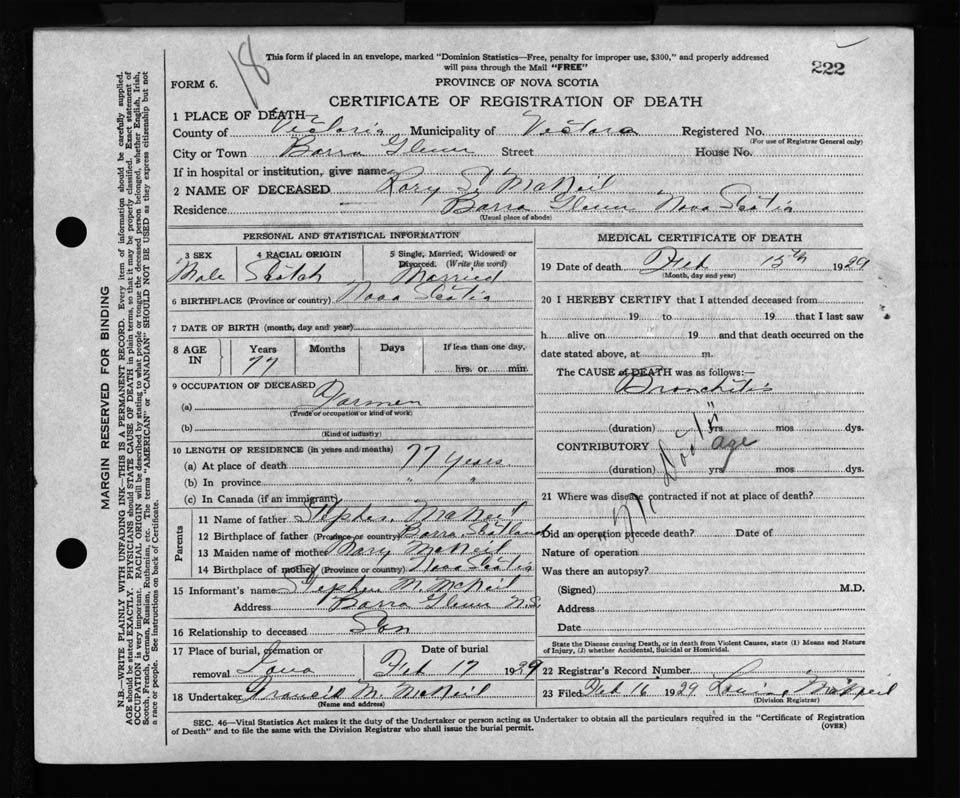 18
This form if placed in an envelope, marked "Dominion Statistics—Free, penalty for improper use, $300," and properly addressed
will pass through the Mail "FREE"
222
FORM 6.
PROVINCE OF NOVA SCOTIA
CERTIFICATE OF REGISTRATION OF DEATH
1 PLACE OF DEATH—
County of Victoria Municipality of Victoria Registered No.
(For use of Registrar General only)
City or Town Barra Glenn Street House No.
If in hospital or institution, give name
2 NAME OF DECEASED Rory S. McNeil
Residence Barra Glenn Nova Scotia
(Usual place of abode)
PERSONAL AND STATISTICAL INFORMATION
3 SEX 4 RACIAL ORIGIN 5 Single, Married, Widowed or
Divorced. (Write the word)
Male Scotch Married
6 BIRTHPLACE (Province or country) Nova Scotia
7 DATE OF BIRTH (month, day and year)
8 AGE IN Years Months Days If less than one day,
77 hrs. or min.
9 OCCUPATION OF DECEASED
(a) Farmer
(Trade or occupation or kind of work)
(b)
(Kind of industry)
10 LENGTH OF RESIDENCE (in years and months)
(a) At place of death 77 Years
(b) In province " "
(c) In Canada (if an immigrant)
Parents
11 Name of father Stephen McNeil
12 Birthplace of father (Province or country) Barra Scotland
13 Maiden name of mother Mary McNeil
14 Birthplace of mother (Province or country) Nova Scotia
15 Informant's name Stephen M. McNeil
Address Barra Glenn N.S.
16 Relationship to deceased Son
17 Place of burial, cremation or Date of burial
removal Iona Feb 17 1929
18 Undertaker Francis M. McNeil
(Name and address)
MEDICAL CERTIFICATE OF DEATH
19 Date of death Feb 15th 1929
(Month, day and year)
20 I HEREBY CERTIFY that I attended deceased from
19 to 19 that I last saw
h alive on 19 and that death occurred on the
date stated above, at m.
The CAUSE of DEATH was as follows:—
Bronchitis
(duration) yrs mos dys.
CONTRIBUTORY age
(duration) yrs mos dys.
21 Where was disease contracted if not at place of death?
Did an operation precede death? Date of
Nature of operation
Was there an autopsy?
(Signed) M.D.
Address
Date
State the Disease causing Death, or in death from Violent Causes, state (1) Means and Nature
of Injury, (2) whether Accidental, Suicidal or Homicidal.
22 Registrar's Record Number
23 Filed Feb 16 1929 McNeil
(Division Registrar)
SEC. 46—Vital Statistics Act makes it the duty of the Undertaker or person acting as Undertaker to obtain all the particulars required in the "Certificate of Registration
of Death" and to file the same with the Division Registrar who shall issue the burial permit.
(OVER)
MARGIN RESERVED FOR BINDING
N.B.—WRITE PLAINLY WITH UNFADING INK—THIS IS A PERMANENT RECORD. Every item of information should be carefully supplied.
AGE should be stated EXACTLY. PHYSICIANS should STATE CAUSE OF DEATH in plain terms, so that it may be properly classified. Exact statement of
OCCUPATION is very important. RACIAL ORIGIN will be described by stating to what people or tongue the deceased person belonged, whether English, Irish,
Scotch, French, German, Russian, Ruthenian, etc. The terms "AMERICAN" or "CANADIAN" SHOULD NOT BE USED as they express citizenship but not
a race or people. See instructions on back of Certificate.